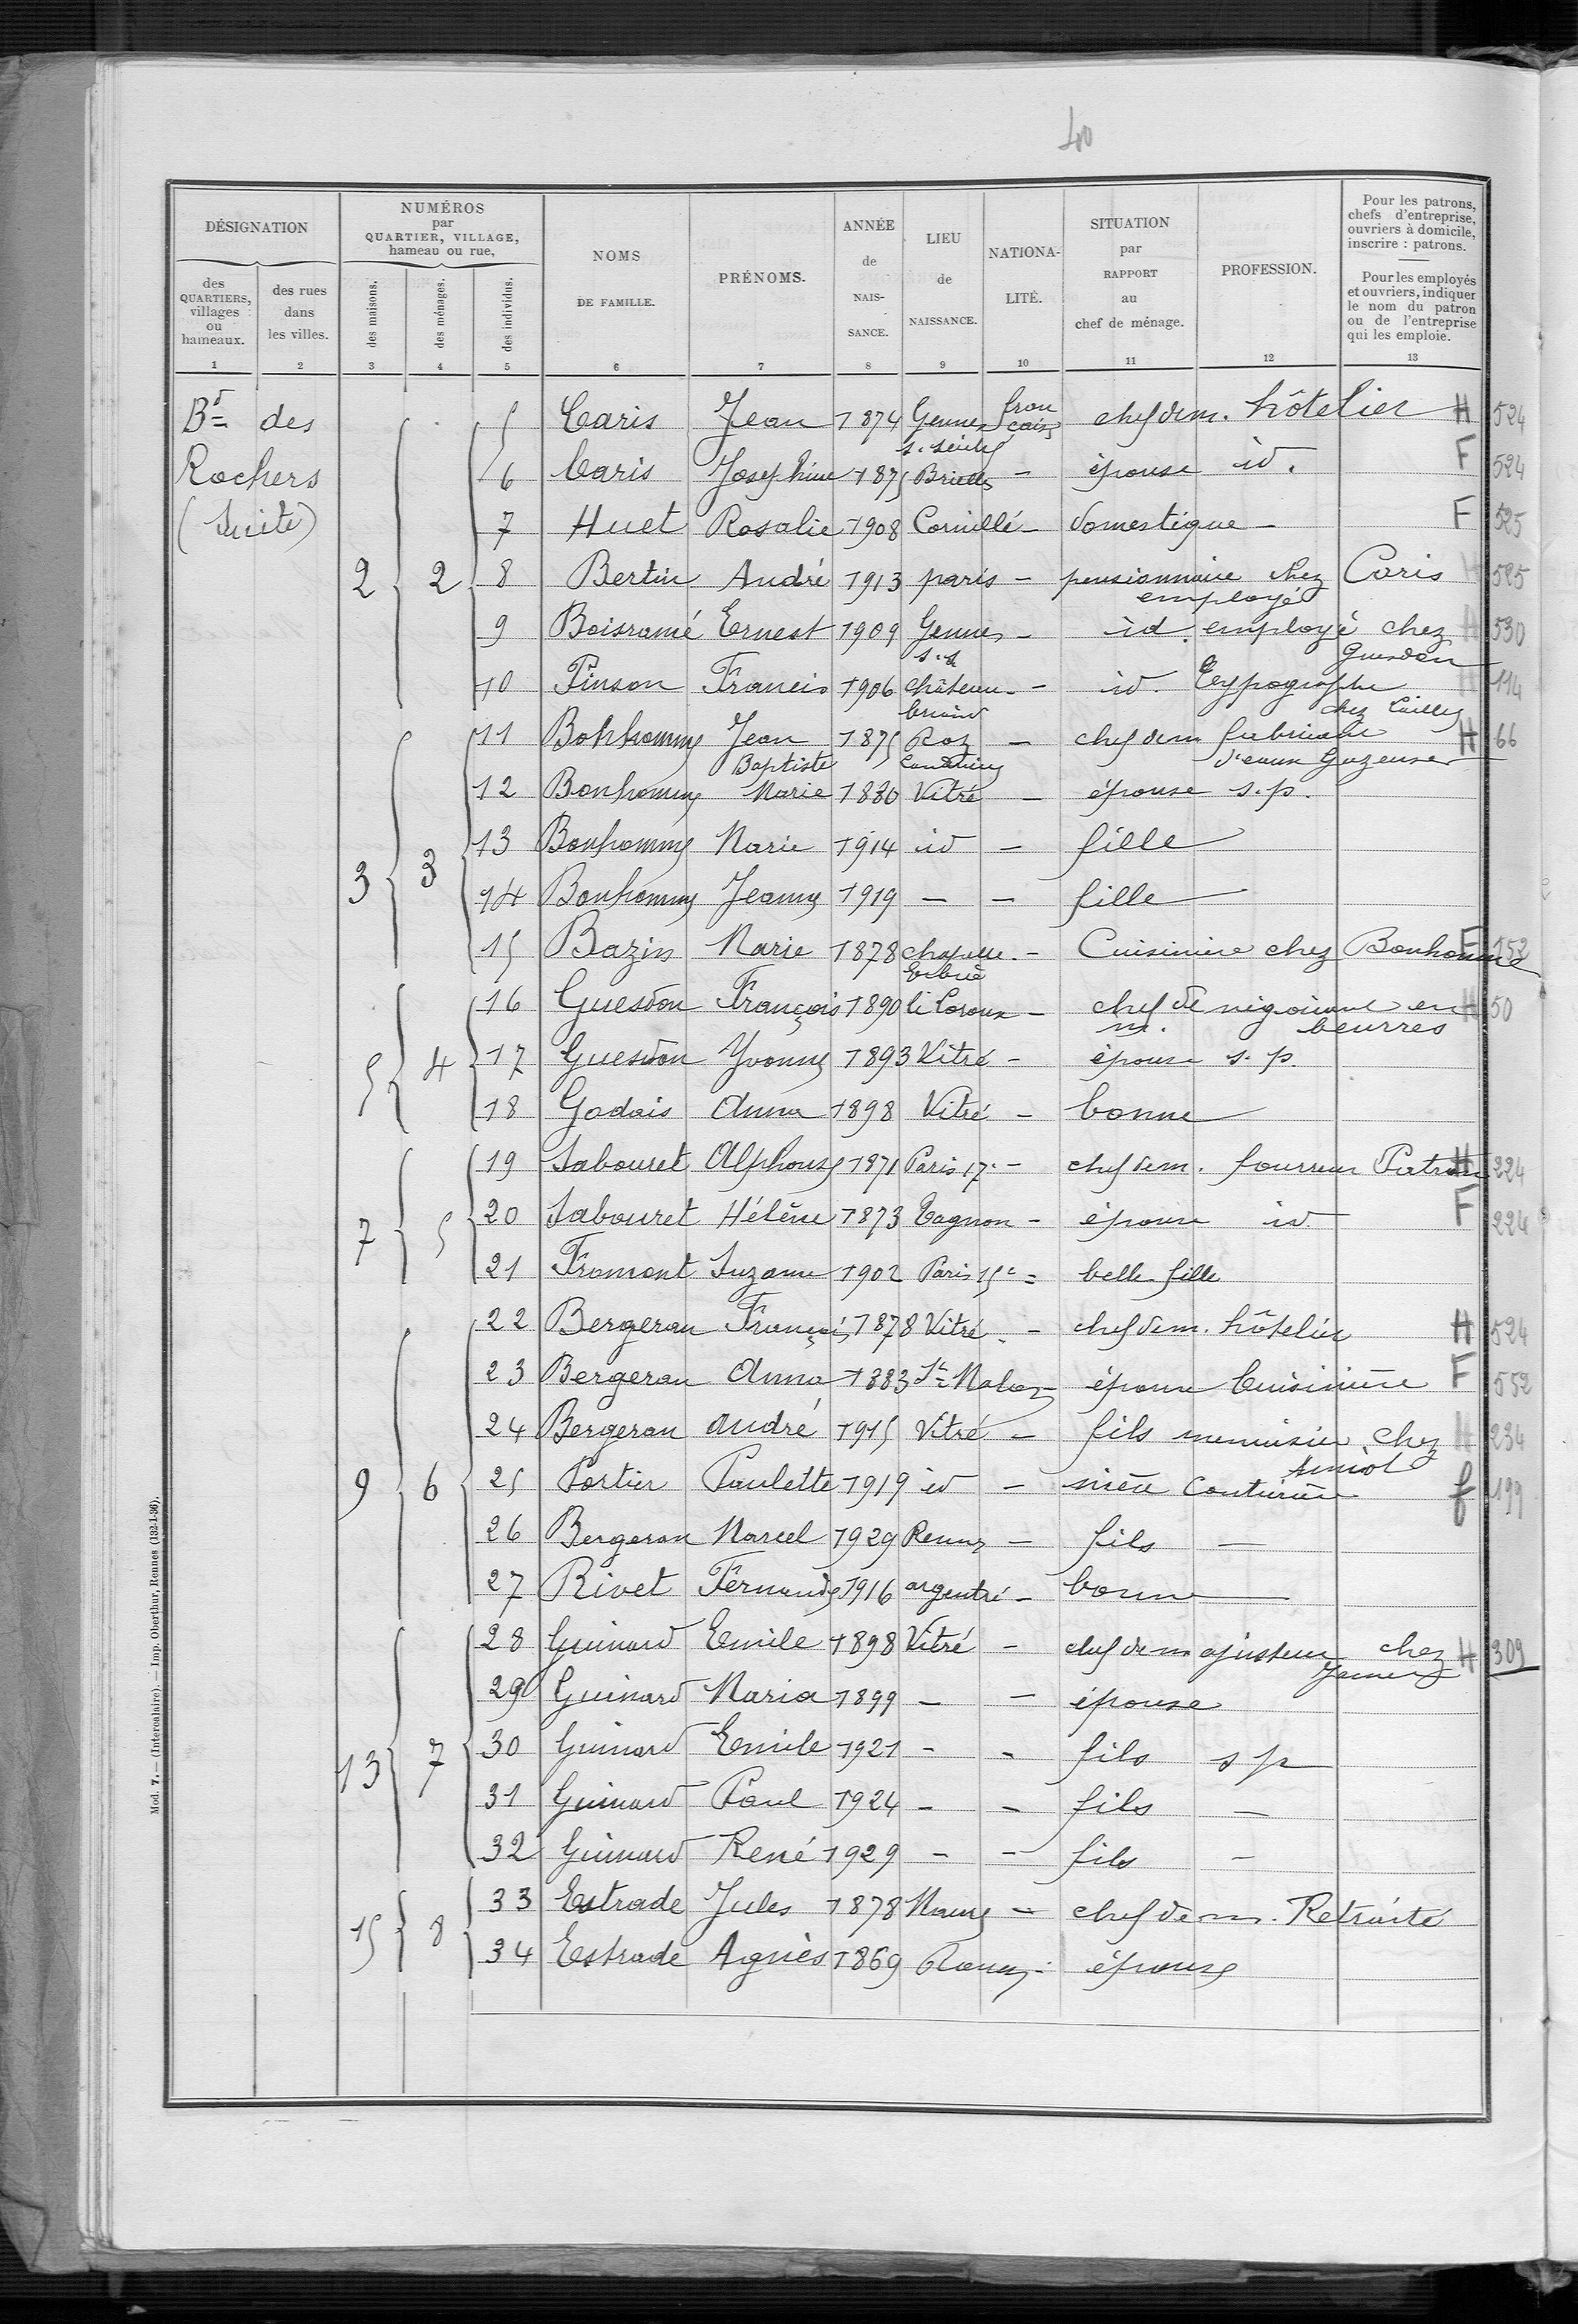 40
DÉSIGNATION
des QUARTIERS, villages ou hameaux.
des rues dans les villes.
NUMÉROS par QUARTIER, VILLAGE, hameau ou rue,
des maisons.
des ménages.
des individus.
NOMS DE FAMILLE.
PRÉNOMS.
ANNÉE de NAIS-SANCE.
LIEU de NAISSANCE.
NATIONA-LITÉ.
SITUATION par RAPPORT au chef de ménage.
PROFESSION.
Pour les patrons, chefs d'entreprise, ouvriers à domicile, inscrire : patrons.
Pour les employés et ouvriers, indiquer le nom du patron ou de l'entreprise qui les emploie.
1 2 3 4 5 6 7 8 9 10 11 12 13
Bd des Rochers (Suite)
5 Caris Jean 1874 Gennes s. seiche française chef de m. hôtelier H 524
6 Caris Josephine 1875 Brielles – épouse id. F 524
7 Huet Rosalie 1908 Cornillé – domestique – F 525
2 2 8 Bertin André 1913 paris – pensionnaire employé chez Caris H 525
9 Boisramé Ernest 1909 Gennes s.s – id. employé chez Guesdon H 530
10 Pinson Francis 1906 châteaubriand – id. Typographe chez H 114
11 Bonhomme Jean Baptiste 1875 Roz Landrieux – chef de m fabricant d'eaux Gazeuses H 66
12 Bonhomme Marie 1880 Vitré – épouse s.p.
3 3 13 Bonhomme Marie 1914 id – fille
14 Bonhomme Jeanne 1919 – – fille
15 Bazin Marie 1878 chapelle Erbrée – Cuisinière chez Bonhomme F 552
16 Guesdon François 1890 le Loroux – chef de m. négociant en beurres H 50
5 4 17 Guesdon Yvonne 1893 Vitré – épouse s.p.
18 Godais Anna 1898 Vitré – bonne
19 Sabouret Alphonse 1871 Paris 17e – chef de m. fourreur Patron H 224
7 5 20 Sabouret Hélène 1873 Tagnon – épouse id. F 224
21 Fromont Suzanne 1902 Paris 15e – belle-fille
22 Bergeron François 1878 Vitré – chef de m. hôtelier H 524
23 Bergeron Anna 1883 St Malo – épouse Cuisinière F 552
24 Bergeron André 1915 Vitré – fils menuisier chez H 234
9 6 25 Portier Paulette 1919 id – nièce Couturière f 199
26 Bergeron Marcel 1929 Rennes – fils –
27 Rivet Fernande 1916 argentré – bonne
28 Guinard Emile 1898 Vitré – chef de m ajusteur chez H 309
29 Guinard Maria 1899 – – épouse
13 7 30 Guinard Emile 1921 – – fils s p
31 Guinard Paul 1924 – – fils –
32 Guinard René 1929 – – fils –
15 8 33 Estrade Jules 1878 – chef de m. Retraité
34 Estrade Agnès 1869 – épouse
Mod. 7. — (Intercalaire). — Imp. Oberthur, Rennes (132-1-36).